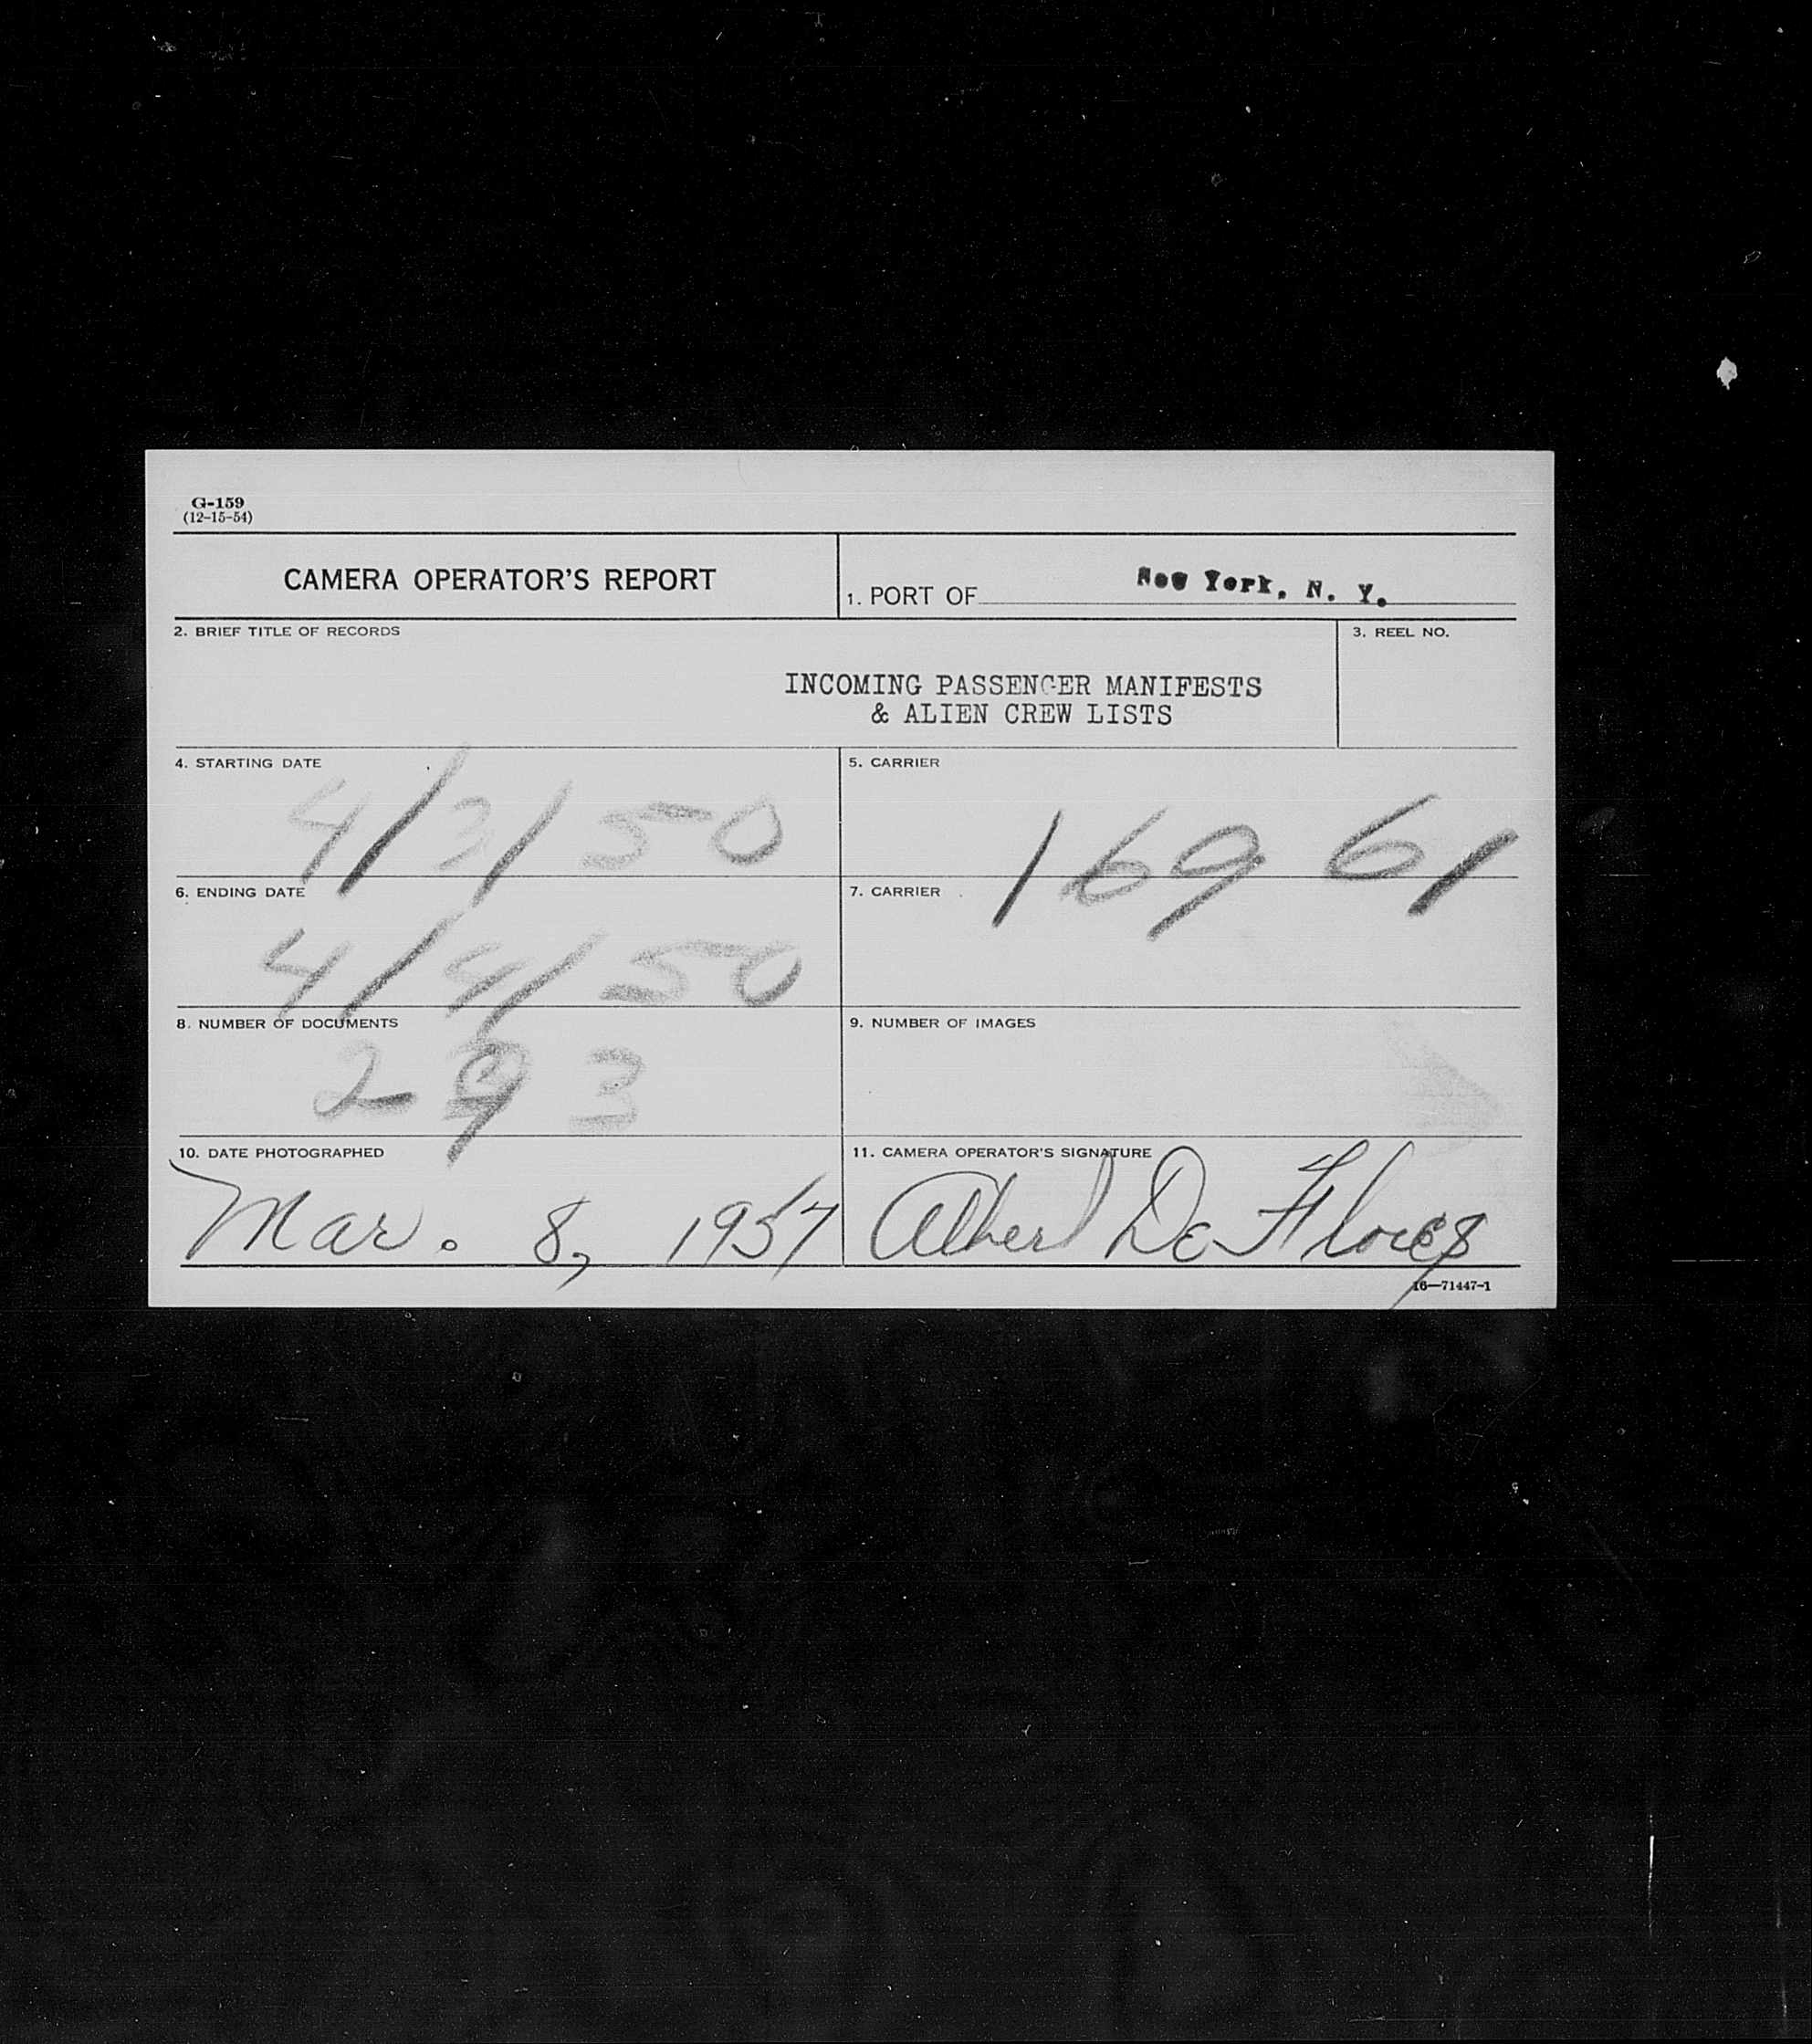 G-159
(12-15-54)
CAMERA OPERATOR'S REPORT
1. PORT OF New York, N. Y.
2. BRIEF TITLE OF RECORDS
3. REEL NO.
INCOMING PASSENGER MANIFESTS
& ALIEN CREW LISTS
4. STARTING DATE
4/3/50
5. CARRIER
16961
6. ENDING DATE
4/4/50
7. CARRIER
8. NUMBER OF DOCUMENTS
293
9. NUMBER OF IMAGES
10. DATE PHOTOGRAPHED
Mar. 8, 1957
11. CAMERA OPERATOR'S SIGNATURE
Albert De Flores
16—71447-1